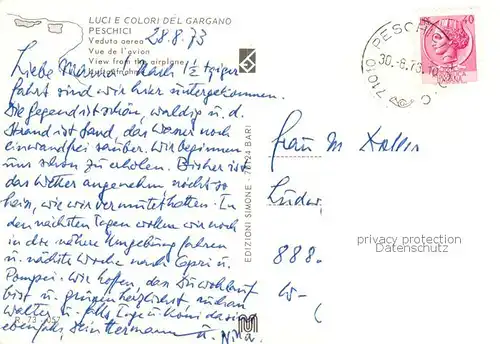 LUCI E COLORI DEL GARGANO
PESCHICI
Veduta aerea
Vue de l'avion
View from the airplane
Luftaufnahme
28.8.73
Liebe Mama! Nach 1½ tägiger
Fahrt sind wir hier untergekommen.
Die Gegend ist schön, waldig u. d.
Strand ist Sand, das Wasser noch
einwandfrei sauber. Wir beginnen
uns schon zu erholen. Bisher ist
das Wetter angenehm, nicht so
heiss, wie wir vermutet hatten. In
den nächsten Tagen wollen wir noch
in die nähere Umgebung fahren
u. nächste Woche nach Capri u.
Pompei. Wir hoffen, dass Du wohlauf
bist u. grüssen herzlichst
Walter u. falls
ebenfalls, Hermann u.
R 73 - 057
EDIZIONI SIMONE - 70124 BARI
71010 PESCHICI
30.-8.73.
40
Frau M.
888-
privacy protection
Datenschutz